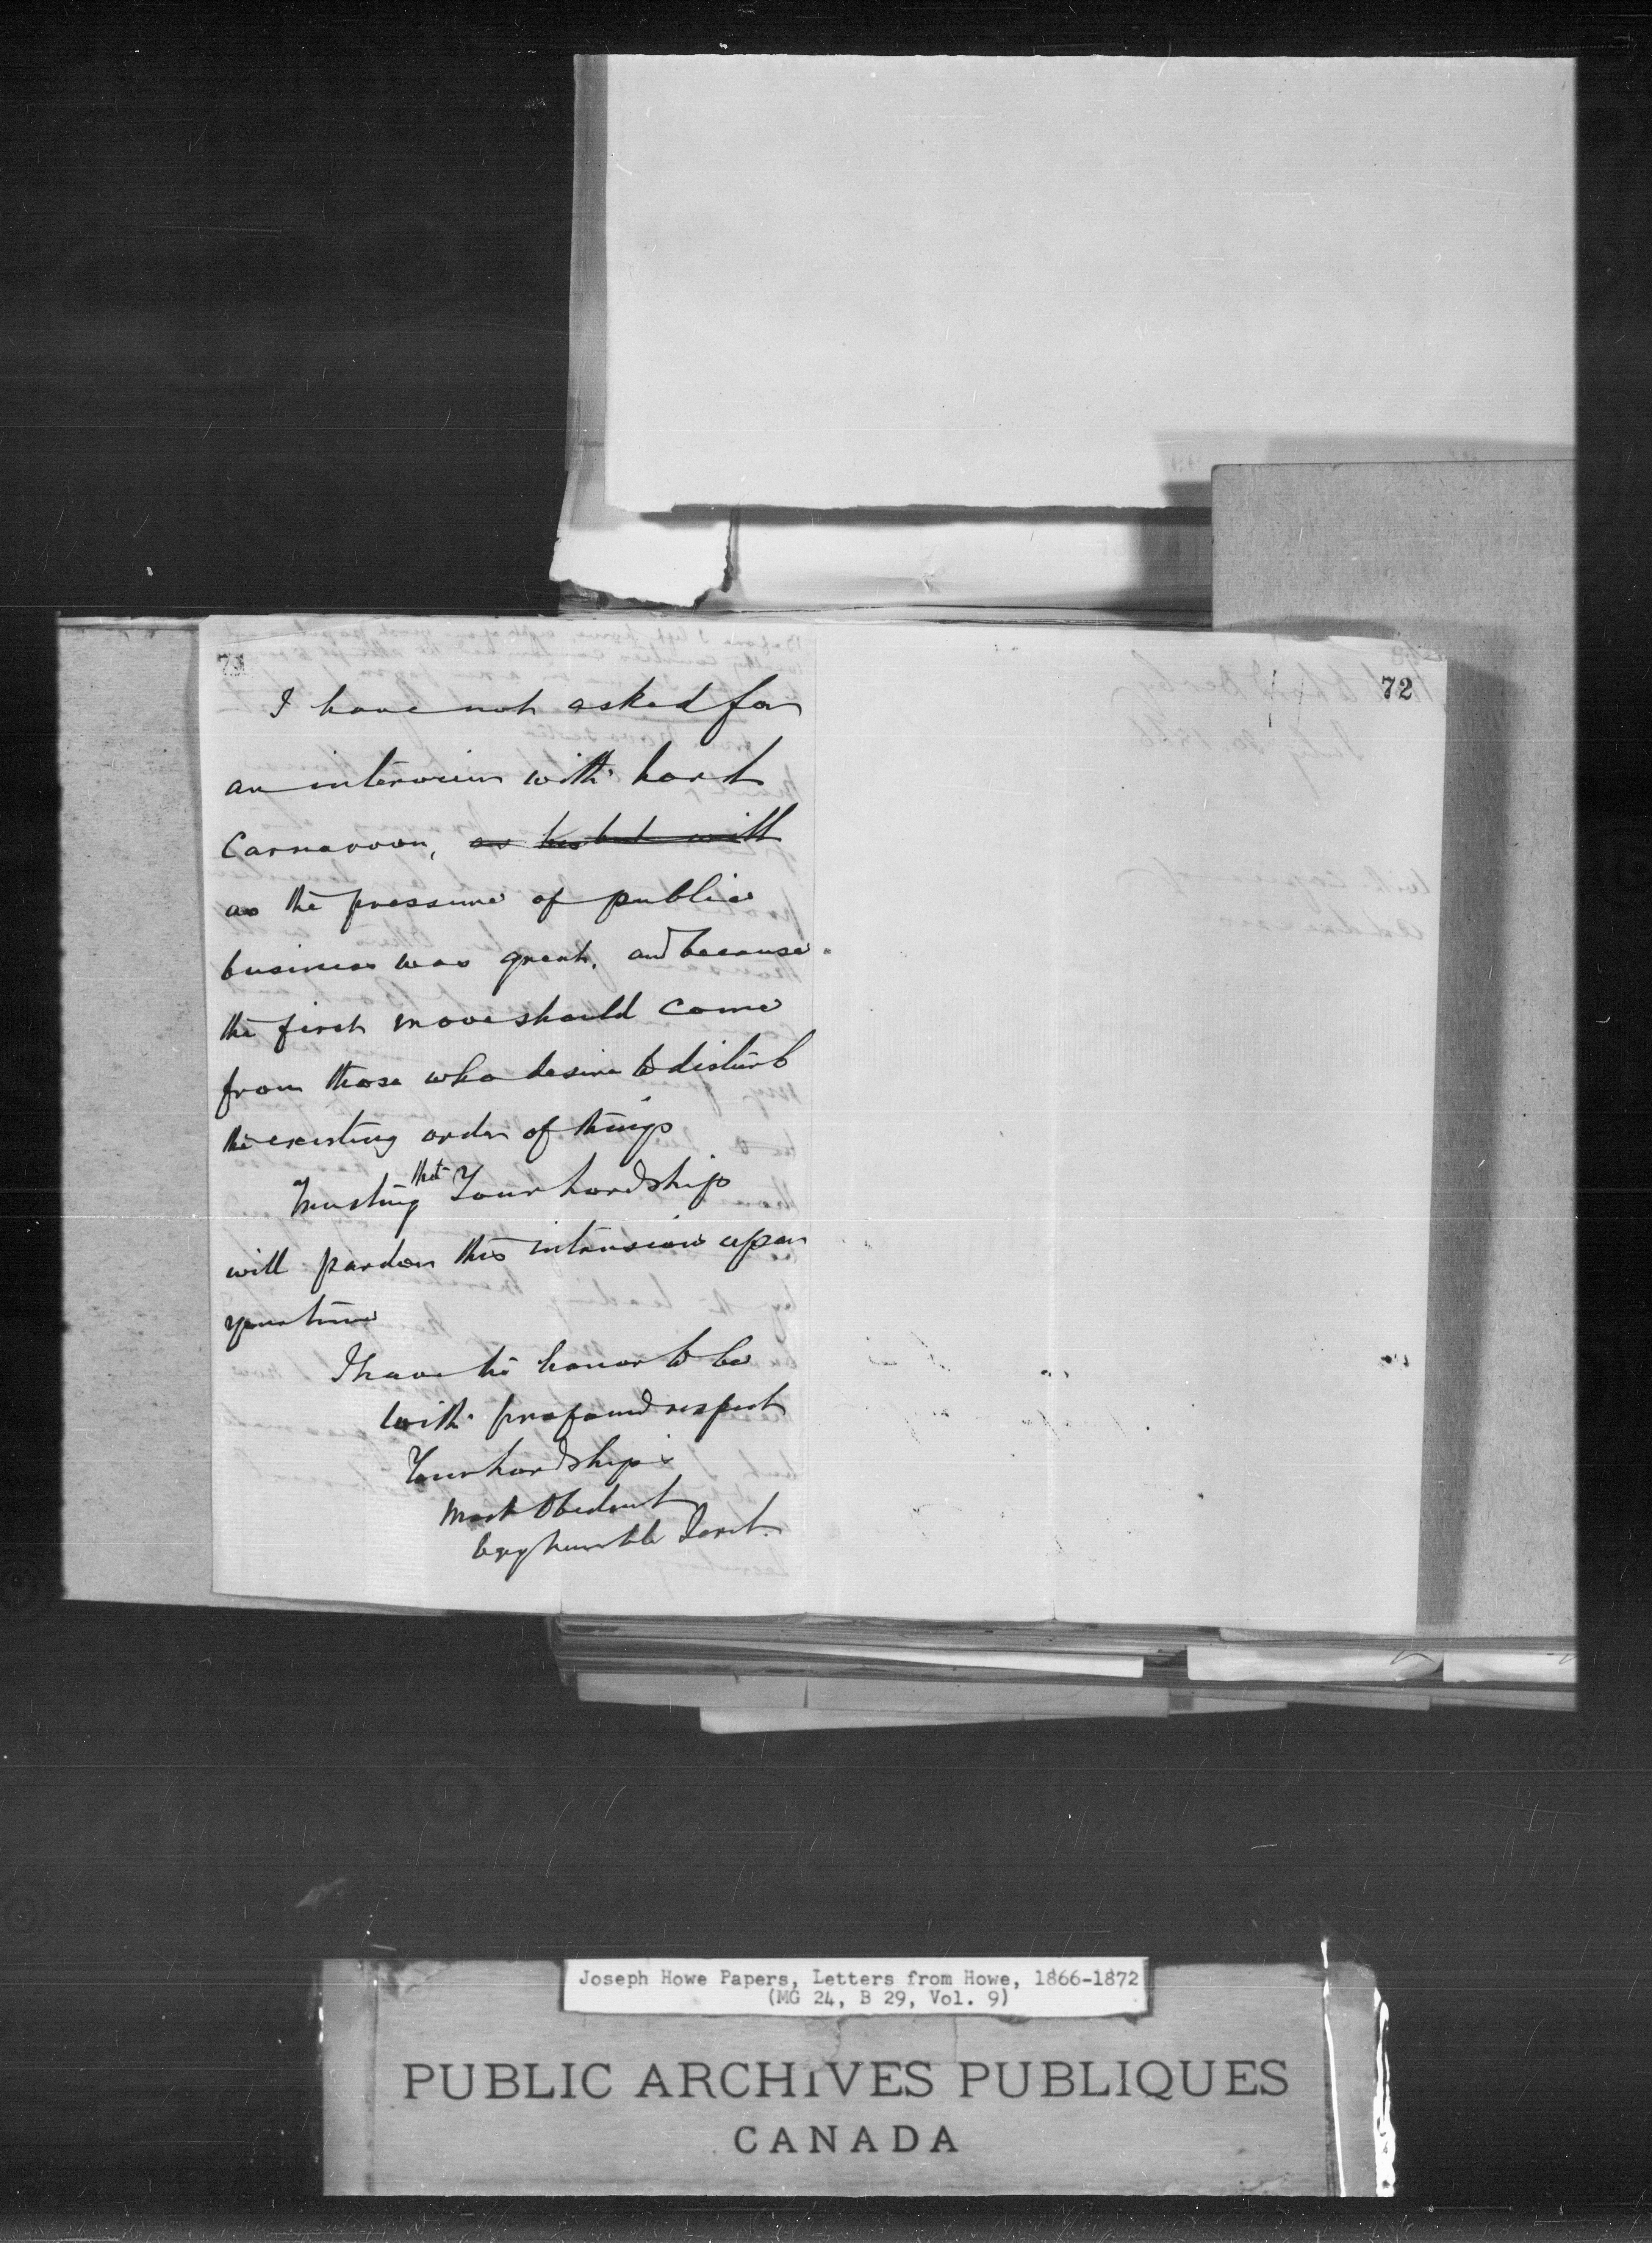 72
I have not asked for
an interview with Lord
Carnarvon, as his but with
as the pressure of public
business was great, and because
the first move should come
from those who desire to disturb
the existing order of things
Trusting that Your Lordship
will pardon this intrusion upon
your time
I have the honor to be
with profound respect
Your Lordship's
Most Obedient
Very humble Servt.
Joseph Howe Papers, Letters from Howe, 1866-1872
(MG 24, B 29, Vol. 9)
PUBLIC ARCHIVES PUBLIQUES
CANADA